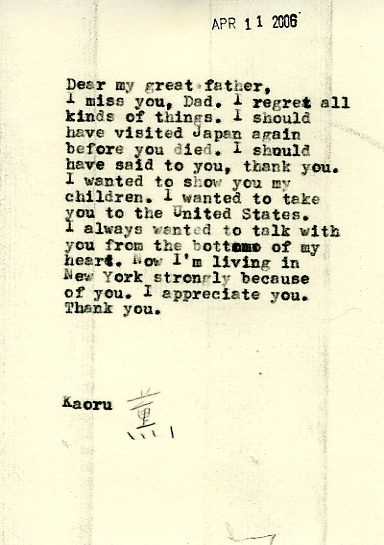 APR 11 2006
Dear my great father,
I miss you, Dad. I regret all
kinds of things. I should
have visited Japan again
before you died. I should
have said to you, thank you.
I wanted to show you my
children. I wanted to take
you to the United States.
I always wanted to talk with
you from the bottomo of my
heart. Now I'm living in
New York strongly because
of you. I appreciate you.
Thank you.
Kaoru 薫